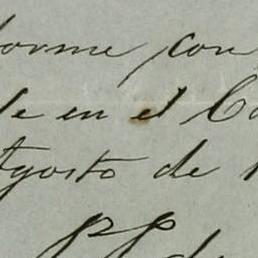 forme con
de en el Ca
Agosto de 1